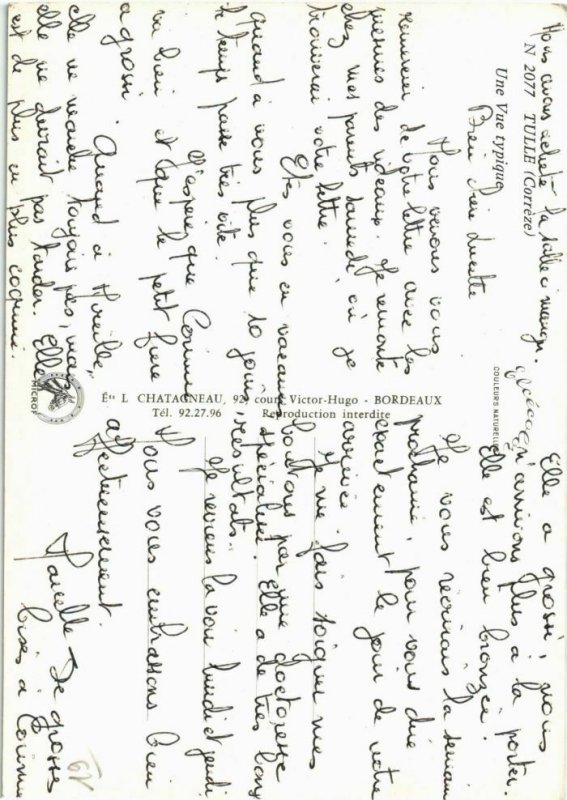 Nous avons acheté la salle à manger.
N 2077 TULLE (Corrèze)
Une Vue typique
Bien chère Lucette
Nous venons vous
remercier de votre lettre avec les
mesures des rideaux. Je remonte
chez mes parents samedi où je
trouverai votre lettre.
Etes vous en vacances
quand à nous plus que 10 jours,
le temps passe très vite.
J'espère que Corinne
va bien et que le petit frère
a grossi.
Quand à Mireille,
elle ne marche toujours pas, mais
elle ne pas tarder. Elle
est de plus en plus coquine.
COULEURS NATURELLES
Éts L CHATAGNEAU, 92, cours Victor-Hugo - BORDEAUX
Tél. 92.27.96 Reproduction interdite
Elle a grossi, nous
n'arrivons plus à la porter.
Elle est bien bronzée.
Je vous récrirais la semaine
prochaine, pour vous dire
exactement le jour de votre
arrivée
Je me fais soigner mes
boutons par une doctoresse
spécialisée. Elle a de très bons
résultats.
Je reviens la voir lundi et jeudi
Nous vous embrassons bien
affectueusement.
Marcelle De grosses
bises à Corinne